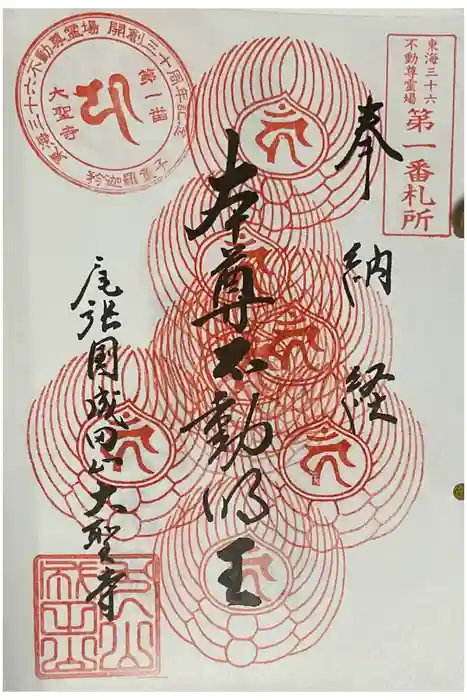 東海三十六
不動尊霊場
第一番札所
奉納経
本尊不動明王
尾張国成田山大聖寺
東海三十六不動尊霊場 開創三十周年記念
第一福
大聖寺
矜伽羅童子